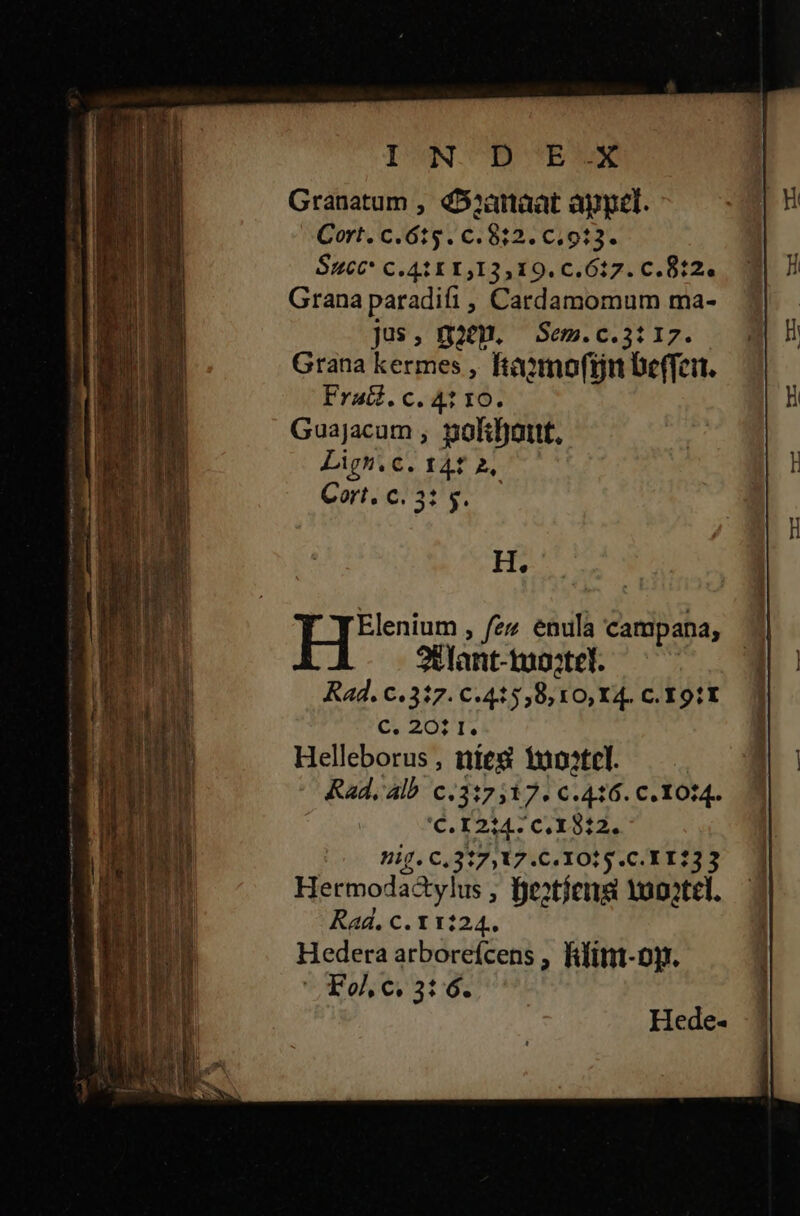 INDEX
Granatum, Granaat appel.
Cort. c. 6:5. c. 8:2. c. 9:3.
Succ. c. 4:11,13,19. c. 6:7. c. 8:2.
Grana paradiſi, Cardamomum ma-
jus, greyn. Sem. c. 3:17.
Grana kermes, karmoſijn beſſen.
Fruct. c. 4:10.
Guajacum, pokhout.
Lign. c. 14:2.
Cort. c. 3:5.
H.
HElenium, ſeu enula campana,
Alant-wortel.
Rad. c. 3:7. c. 4:5,8,10,14. c. 19:1
c. 20:1.
Helleborus, nies wortel.
Rad. alb c. 3:7,17. c. 4:6. c. 10:4.
c. 12:4. c. 18:2.
nig. c. 3:7,17. c. 10:5. c. 11:33
Hermodactylus, hertjens wortel.
Rad. c. 11:24.
Hedera arboreſcens, klim-op.
Fol. c. 3:6.
Hede-